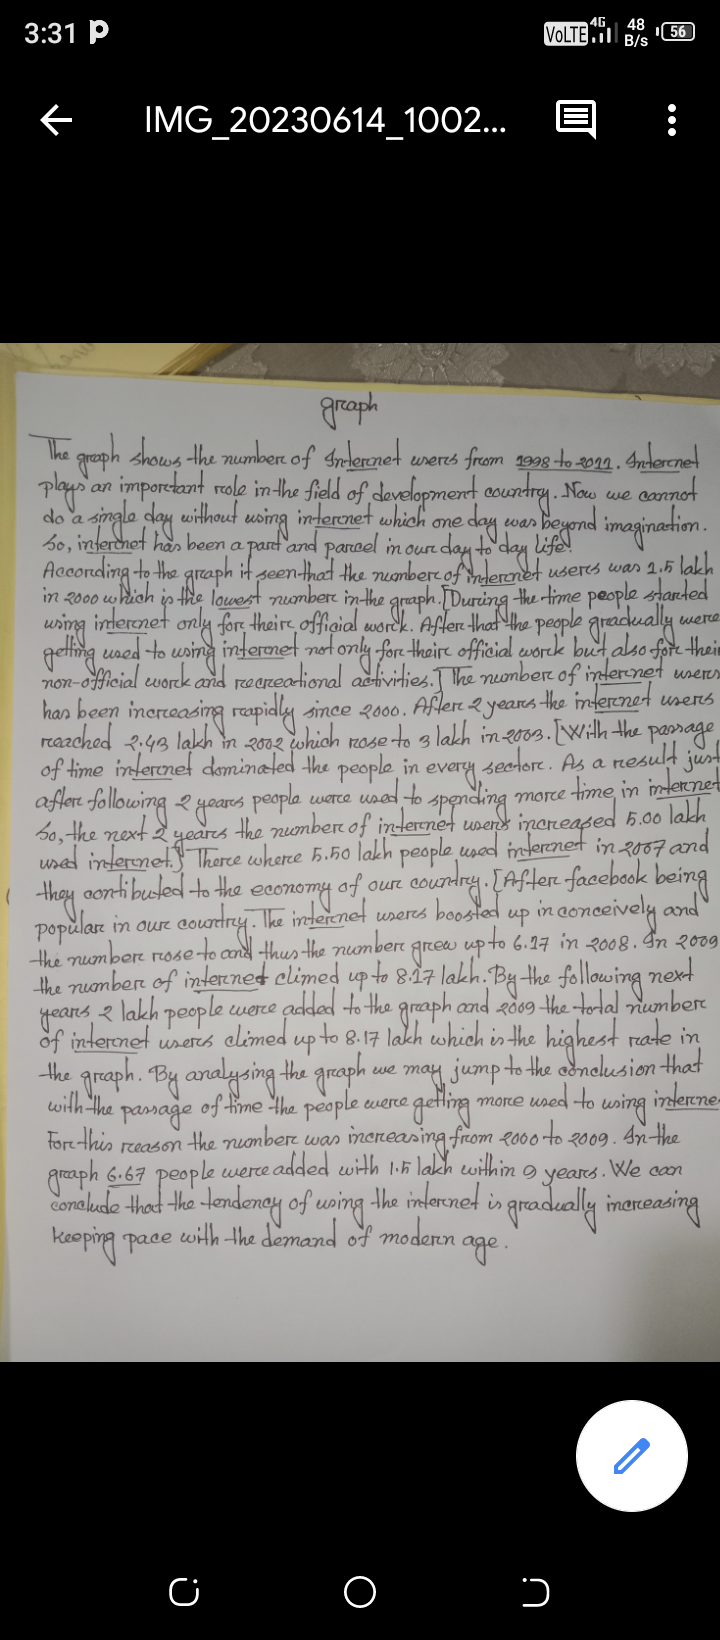 3:31
VoLTE 4G 48 B/s 56
IMG_20230614_1002...
graph
The graph shows the number of Internet users from 1998 to 2011. Internet
plays an important role in the field of development country. Now we cannot
do a single day without using internet which one day was beyond imagination.
So, internet has been a part and parcel in our day to day life.
According to the graph it seen that the number of internet users was 1.5 lakh
in 2000 which is the lowest number in the graph. [During the time people started
using internet only for their official work. After that the people gradually were
getting used to using internet not only for their official work but also for their
non-official work and recreational activities.] The number of internet users
has been increasing rapidly since 2000. After 2 years the internet users
reached 2.43 lakh in 2002 which rose to 3 lakh in 2003. [With the passage
of time internet dominated the people in every sector. As a result just
after following 2 years people were used to spending more time in internet
So, the next 2 years the number of internet users increased 5.00 lakh
used internet.] There where 5.50 lakh people used internet in 2007 and
they contibuted to the economy of our country. [After facebook being
popular in our country. The internet users boosted up inconceively and
the number rose to and thus the number grew up to 6.17 in 2008. In 2009
the number of internet climed up to 8.17 lakh. By the following next
years 2 lakh people were added to the graph and 2009 the total number
of internet users climed up to 8.17 lakh which is the highest rate in
the graph. By analysing the graph we may jump to the conclusion that
with the passage of time the people were getting more used to using interne
For this reason the number was increasing from 2000 to 2009. In the
graph 6.67 people were added with 1.5 lakh within 9 years. We can
conclude that the tendency of using the internet is gradually increasing
keeping pace with the demand of modern age.